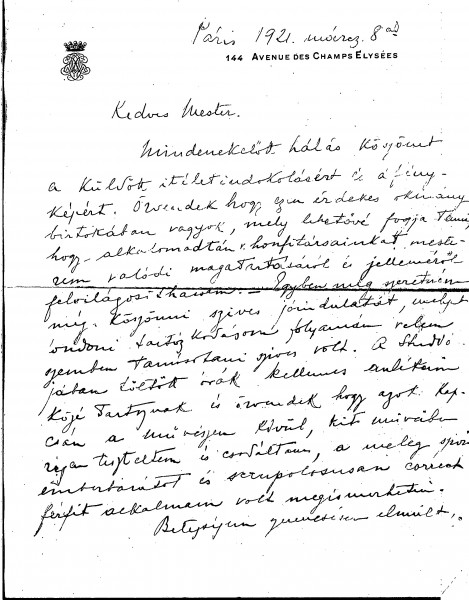 Páris 1921. március 8ád
144 AVENUE DES CHAMPS ELYSÉES
Kedves Mester.
Mindenekelőtt hálás köszönet
a küldött itéletindokolásért és a fény-
képért. Örvendek hogy ezen érdekes okmány
birtokában vagyok, mely lehetővé fogja tenni
hogy alkalomadtán honfitársainkat meste-
rem valódi magatartásáról és jelleméről
felvilágosithassam. — Egyben még szeretném
meg köszönni szives jóindulatát, melyet
londoni tartózkodásom folyamán velem
szemben tanúsitani szives volt. A Studió-
jában töltött órák kellemes emlékeim
közé tartoznak és örvendek hogy azok kap-
csán a művészen kívül, kit műveiben
régen tiszteltem és csodáltam, a meleg szívű
emberbarátot és scrupolosusan correct
férfit alkalmam volt megismerhetni.
Betegségem elmúlt,